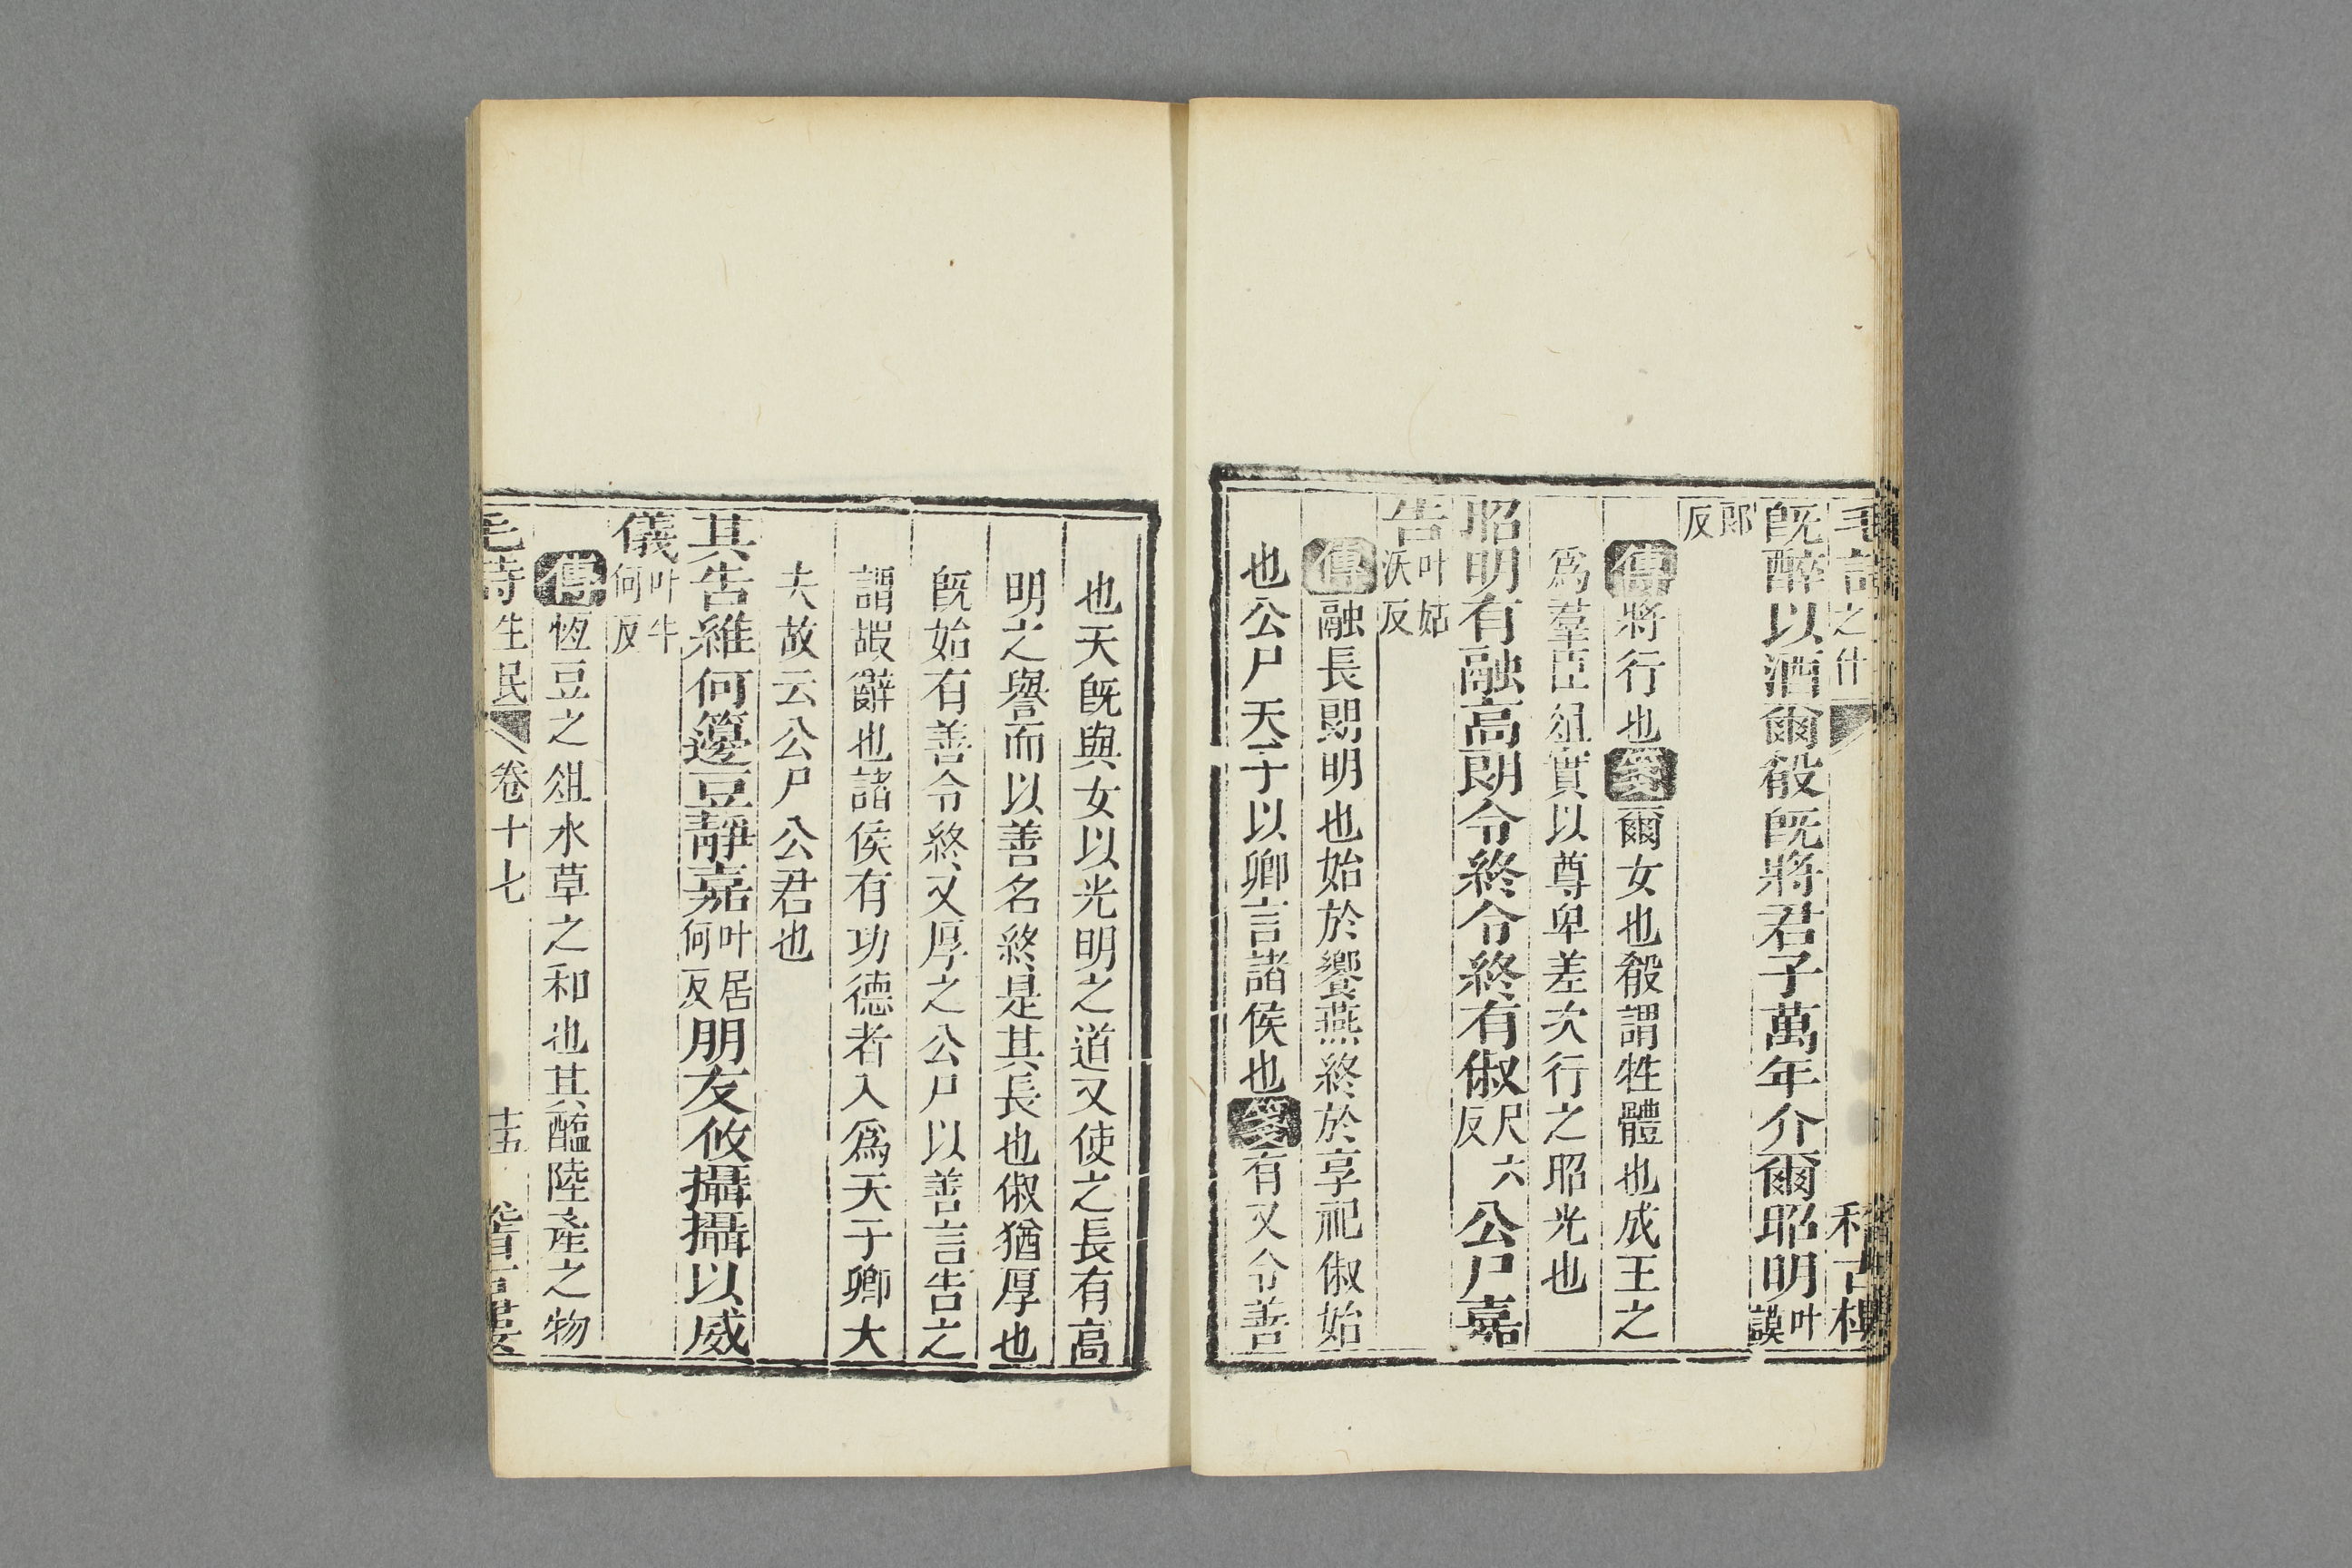 既醉以酒爾殽既將君子萬年介爾昭明叶謨
郎反
傳將行也箋爾女也殽謂牲體也成王之
為羣臣俎實以尊卑差次行之昭光也
昭明有融高朗令終令終有俶尺六反公尸嘉
告叶姑沃反
傳融長朗明也始於饗燕終於享祀俶始
也公尸天子以卿言諸侯也箋有又令善
也天既與女以光明之道又使之長有高
明之譽而以善名終是其長也俶猶厚也
既始有善令終又厚之公尸以善言告之
謂嘏辭也諸侯有功德者入爲天子卿大
夫故云公尸公君也
其告維何籩豆靜嘉叶居何反朋友攸攝攝以威
儀叶牛何反
傳恆豆之俎水草之和也其醢陸產之物
毛詩生民 卷十七 十五